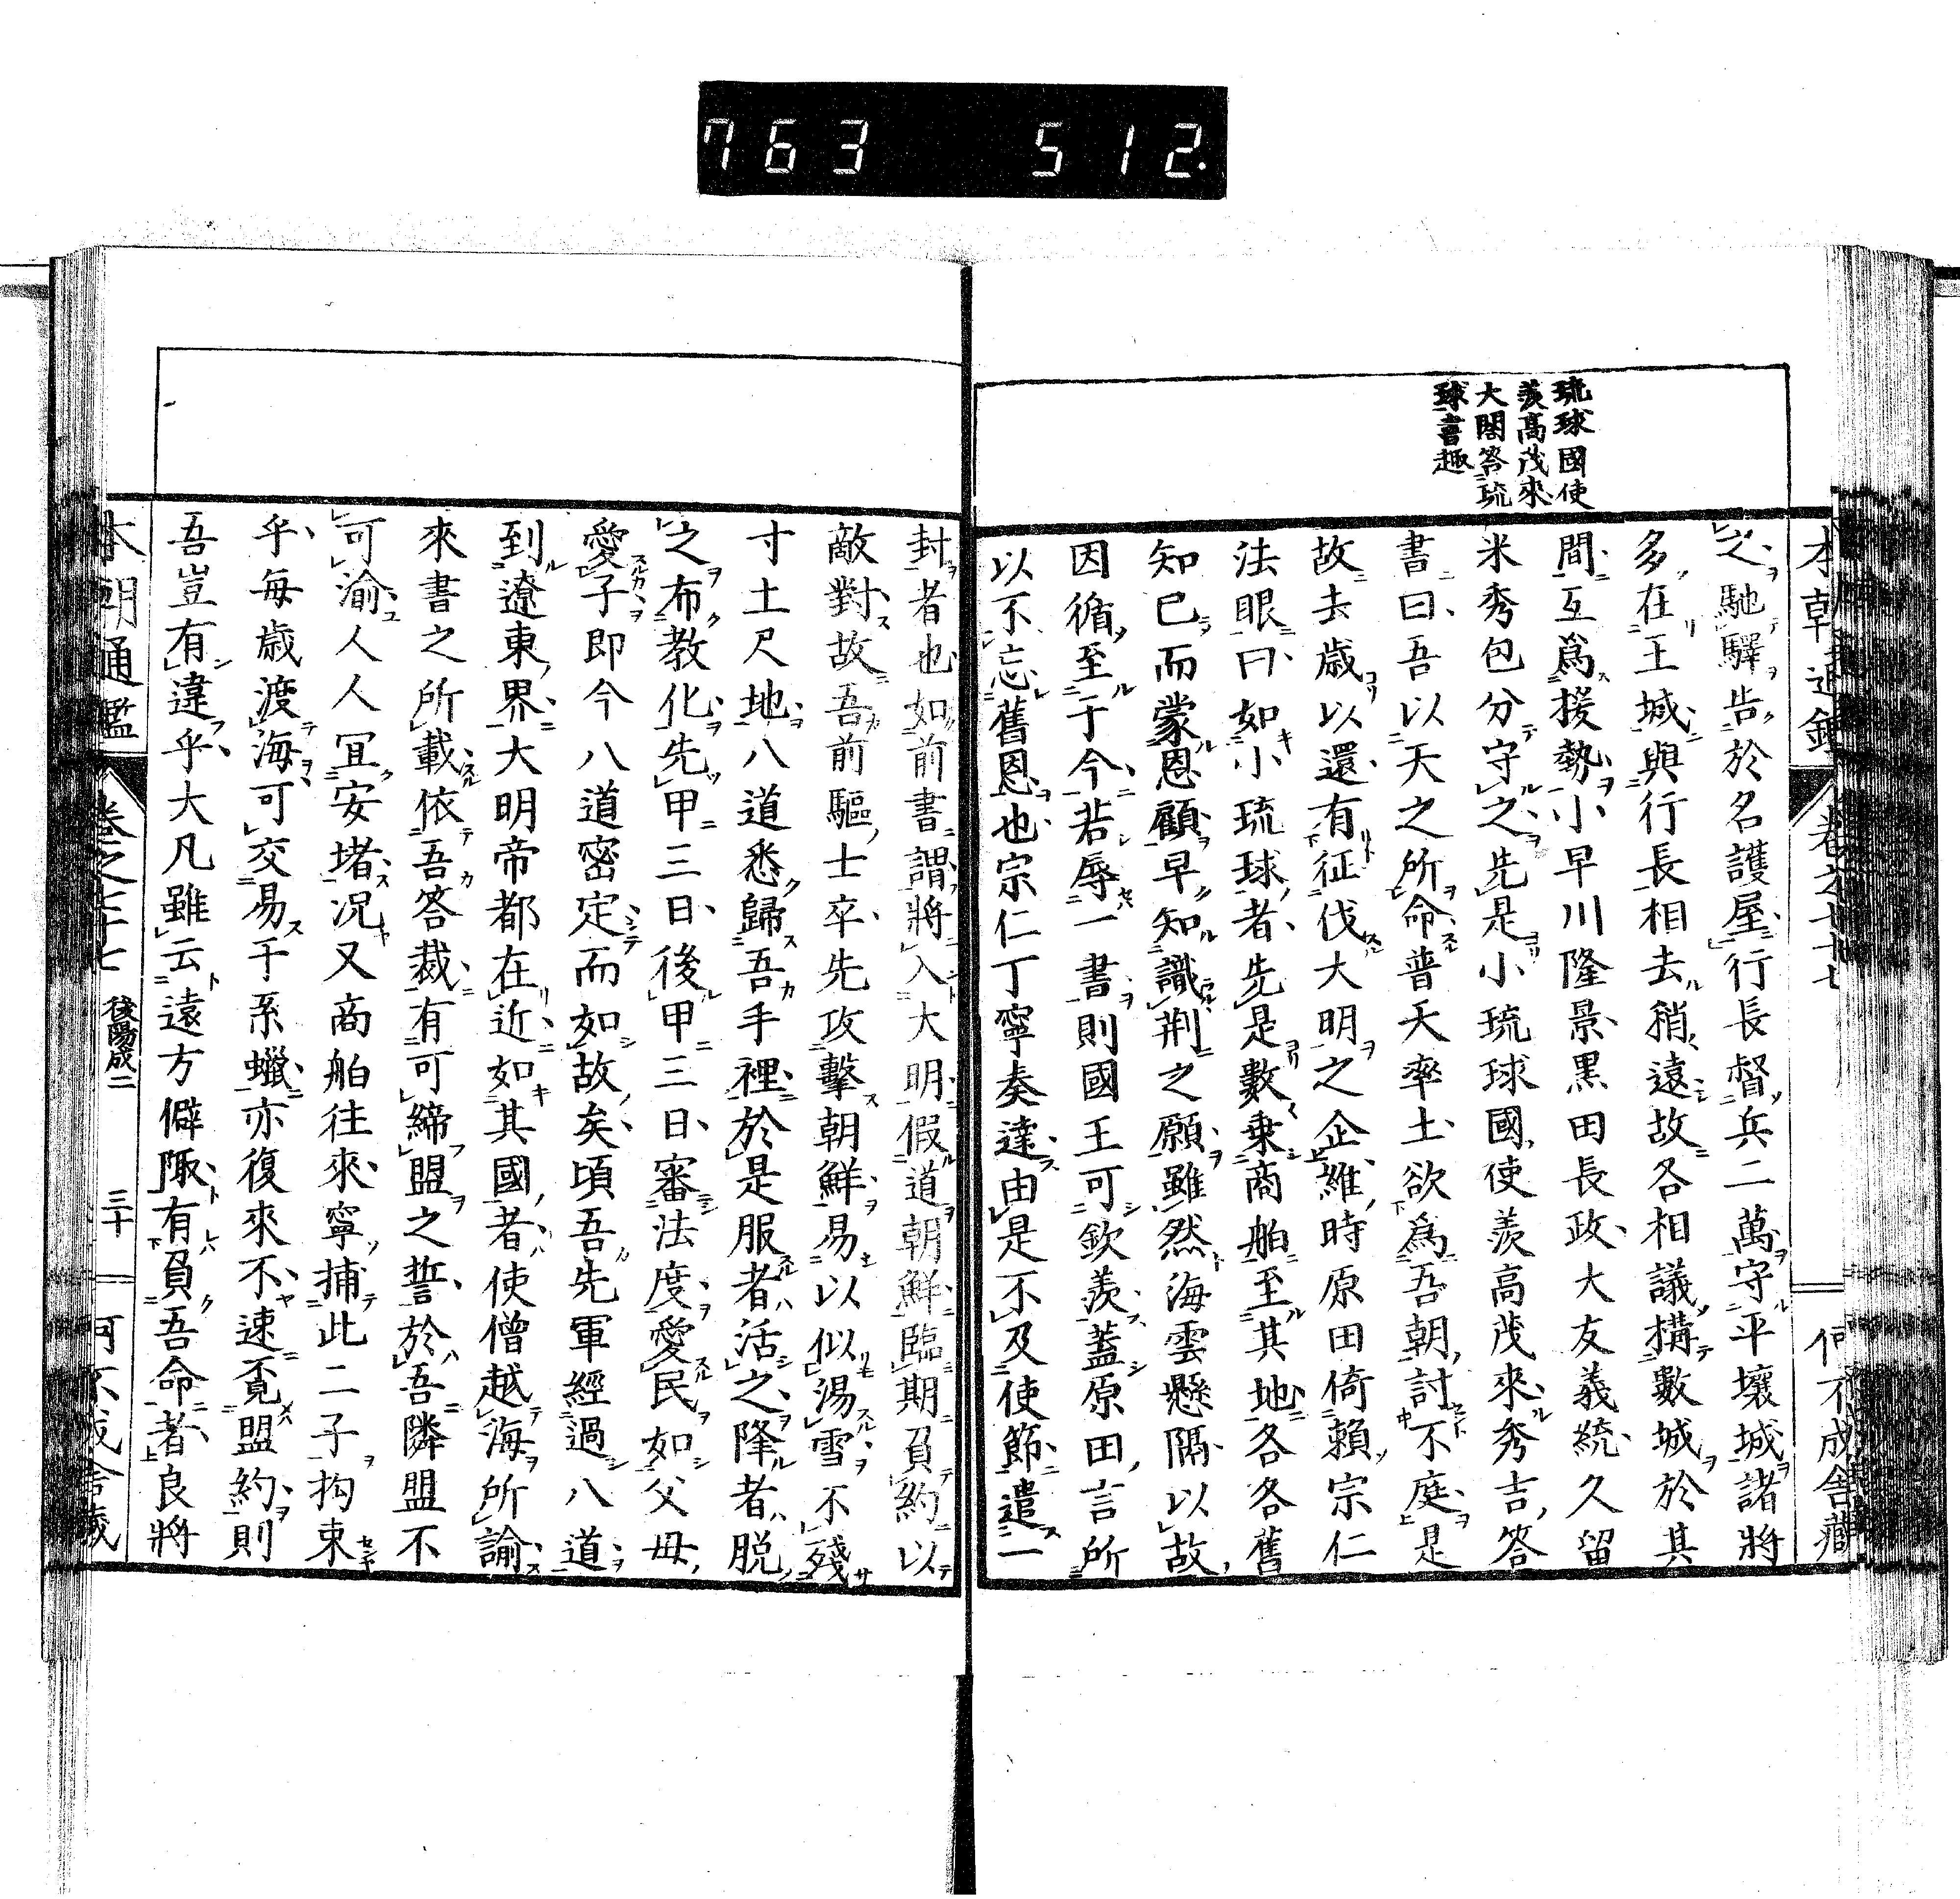 763 512.
本朝通鑑 卷之七十七 何不成舍藏
琉球國使
羨高茂來
大閤答琉
球書趣
之馳驛告於名護屋行長督兵二萬守平壤城諸將
多在王城與行長相去稍遠故各相議構數城於其
間互爲援勢小早川隆景黒田長政大友義統久留
米秀包分守之先是小琉球國使羨高茂來秀吉答
書曰吾以天之所命普天率土欲爲吾朝討不庭是
故去歳以還有征伐大明之企維時原田倚賴宗仁
法眼曰如小琉球者先是數乗商舶至其地各各舊
知已而蒙恩顧早知識荆之願雖然海雲懸隔以故
因循至于今若辱一書則國王可欽羨蓋原田言所
以不忘舊恩也宗仁丁寧奏達由是不及使節遣一
封者也如前書謂將入大明假道朝鮮臨期負約以
敵對故吾前驅士卒先攻擊朝鮮易以似湯雪不殘
寸土尺地八道悉歸吾手裡於是服者活之降者脱
之布教化先甲三日後甲三日審法度愛民如父母
愛子即今八道密定而如故矣頃吾先軍經過八道
到遼東界大明帝都在近如其國者使僧越海所諭
來書之所載依吾答裁有可締盟之誓於吾隣盟不
可渝人人宜安堵况又商舶往來寧捕此二子拘束
乎毎歳渡海可交易于系蠟亦復來不速覔盟約則
吾豈有違乎大凡雖云遠方僻陬有負吾命者良將
本朝通鑑 卷之七十七 後陽成二 三十 何不成舍藏